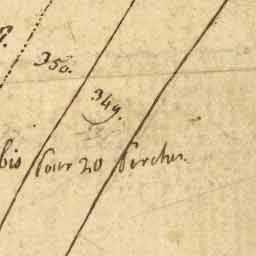 350.
349.
bis pour 20 perches